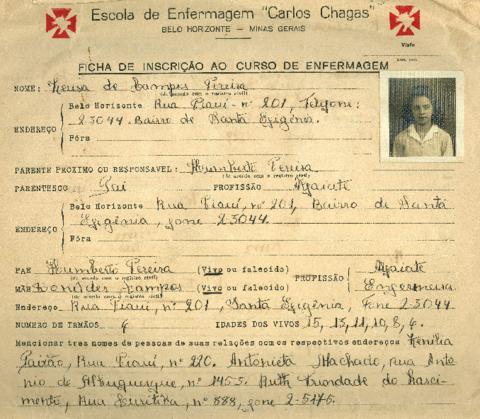 Escola de Enfermagem "Carlos Chagas"
BELO HORIZONTE — MINAS GERAIS
Visto
FICHA DE INSCRIÇÃO AO CURSO DE ENFERMAGEM
NOME: Neusa de Campos Pereira
(de acordo com o registro civil)
Belo Horizonte Rua Piauí - nº 201, Telefone:
ENDEREÇO 23044. Bairro de Santa Efigênia.
Fóra
PARENTE PROXIMO OU RESPONSAVEL: Humberto Pereira
(de acordo com o registro civil)
PARENTESCO Pai PROFISSÃO Alfaiate
Belo Horizonte Rua Piauí, nº 201, Bairro de Santa
ENDEREÇO Efigênia, fone 2-3044.
Fóra
PAE Humberto Pereira (Vivo ou falecido) PROFISSÃO Alfaiate
(de acordo com o registro civil)
MÃE Campos (Vivo ou falecido) Enfermeira
(de acordo com o registro civil)
Endereço Rua Piauí, nº 201, Santa Efigênia, Fone 2-3044.
NUMERO DE IRMÃOS 6 IDADES DOS VIVOS 15, 13, 11, 10, 8, 6.
Mencionar tres nomes de pessoas de suas relações com os respectivos endereços
Paixão, Rua Piauí, nº 220. Antonieta Machado, rua Anto
nio de Albuquerque, nº 1453. Ruth Trindade do Nasci-
mento, Rua Curitiba, nº 888, fone 2-5475.